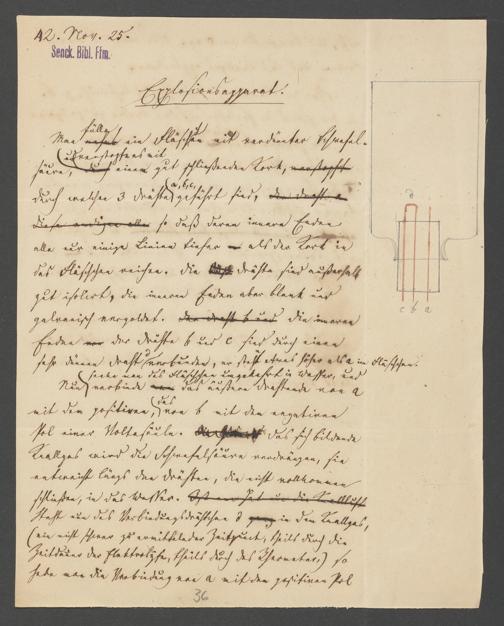 A2. Nov. 25.
Senck. Bibl. Ffm.
Explosionsapparat.
Man fülle ein Fläschchen mit verdünnter Schwefel-
säure, verstopfe es mit einem gut schließenden Kork,
durch welchen 3 Drähte a, b, c, geführt sind,
so daß deren innere Enden
alle nur einige Linien tiefer als der Kork in
das Fläschchen reichen. Die Drähte sind außerhalb
gut isolirt, die inneren Enden aber blank und
galvanisch vergoldet. die inneren
Enden der Drähte b und c sind durch einen
sehr dünnen Draht verbunden, er steht etwas höher als a im Fläschchen.
Nun senke man das Fläschchen umgekehrt in Wasser, und
verbinde das äußere Drahtende von a
mit dem positiven, das von b mit dem negativen
Pol einer Voltasäule. das sich bildende
Knallgas wird die Schwefelsäure verdrängen, sie
entweicht längs den Drähten, die nicht vollkommen
schließen, in das Wasser.
Steht nun das Verbindungsdrähtchen d in dem Knallgas,
(ein nicht schwer zu ermittelnder Zeitpunkt, theils durch die
Zeitdauer der Elektrolyse, theils durch das ) so
hebe man die Verbindung von a mit dem positiven Pol
36
d
c b a